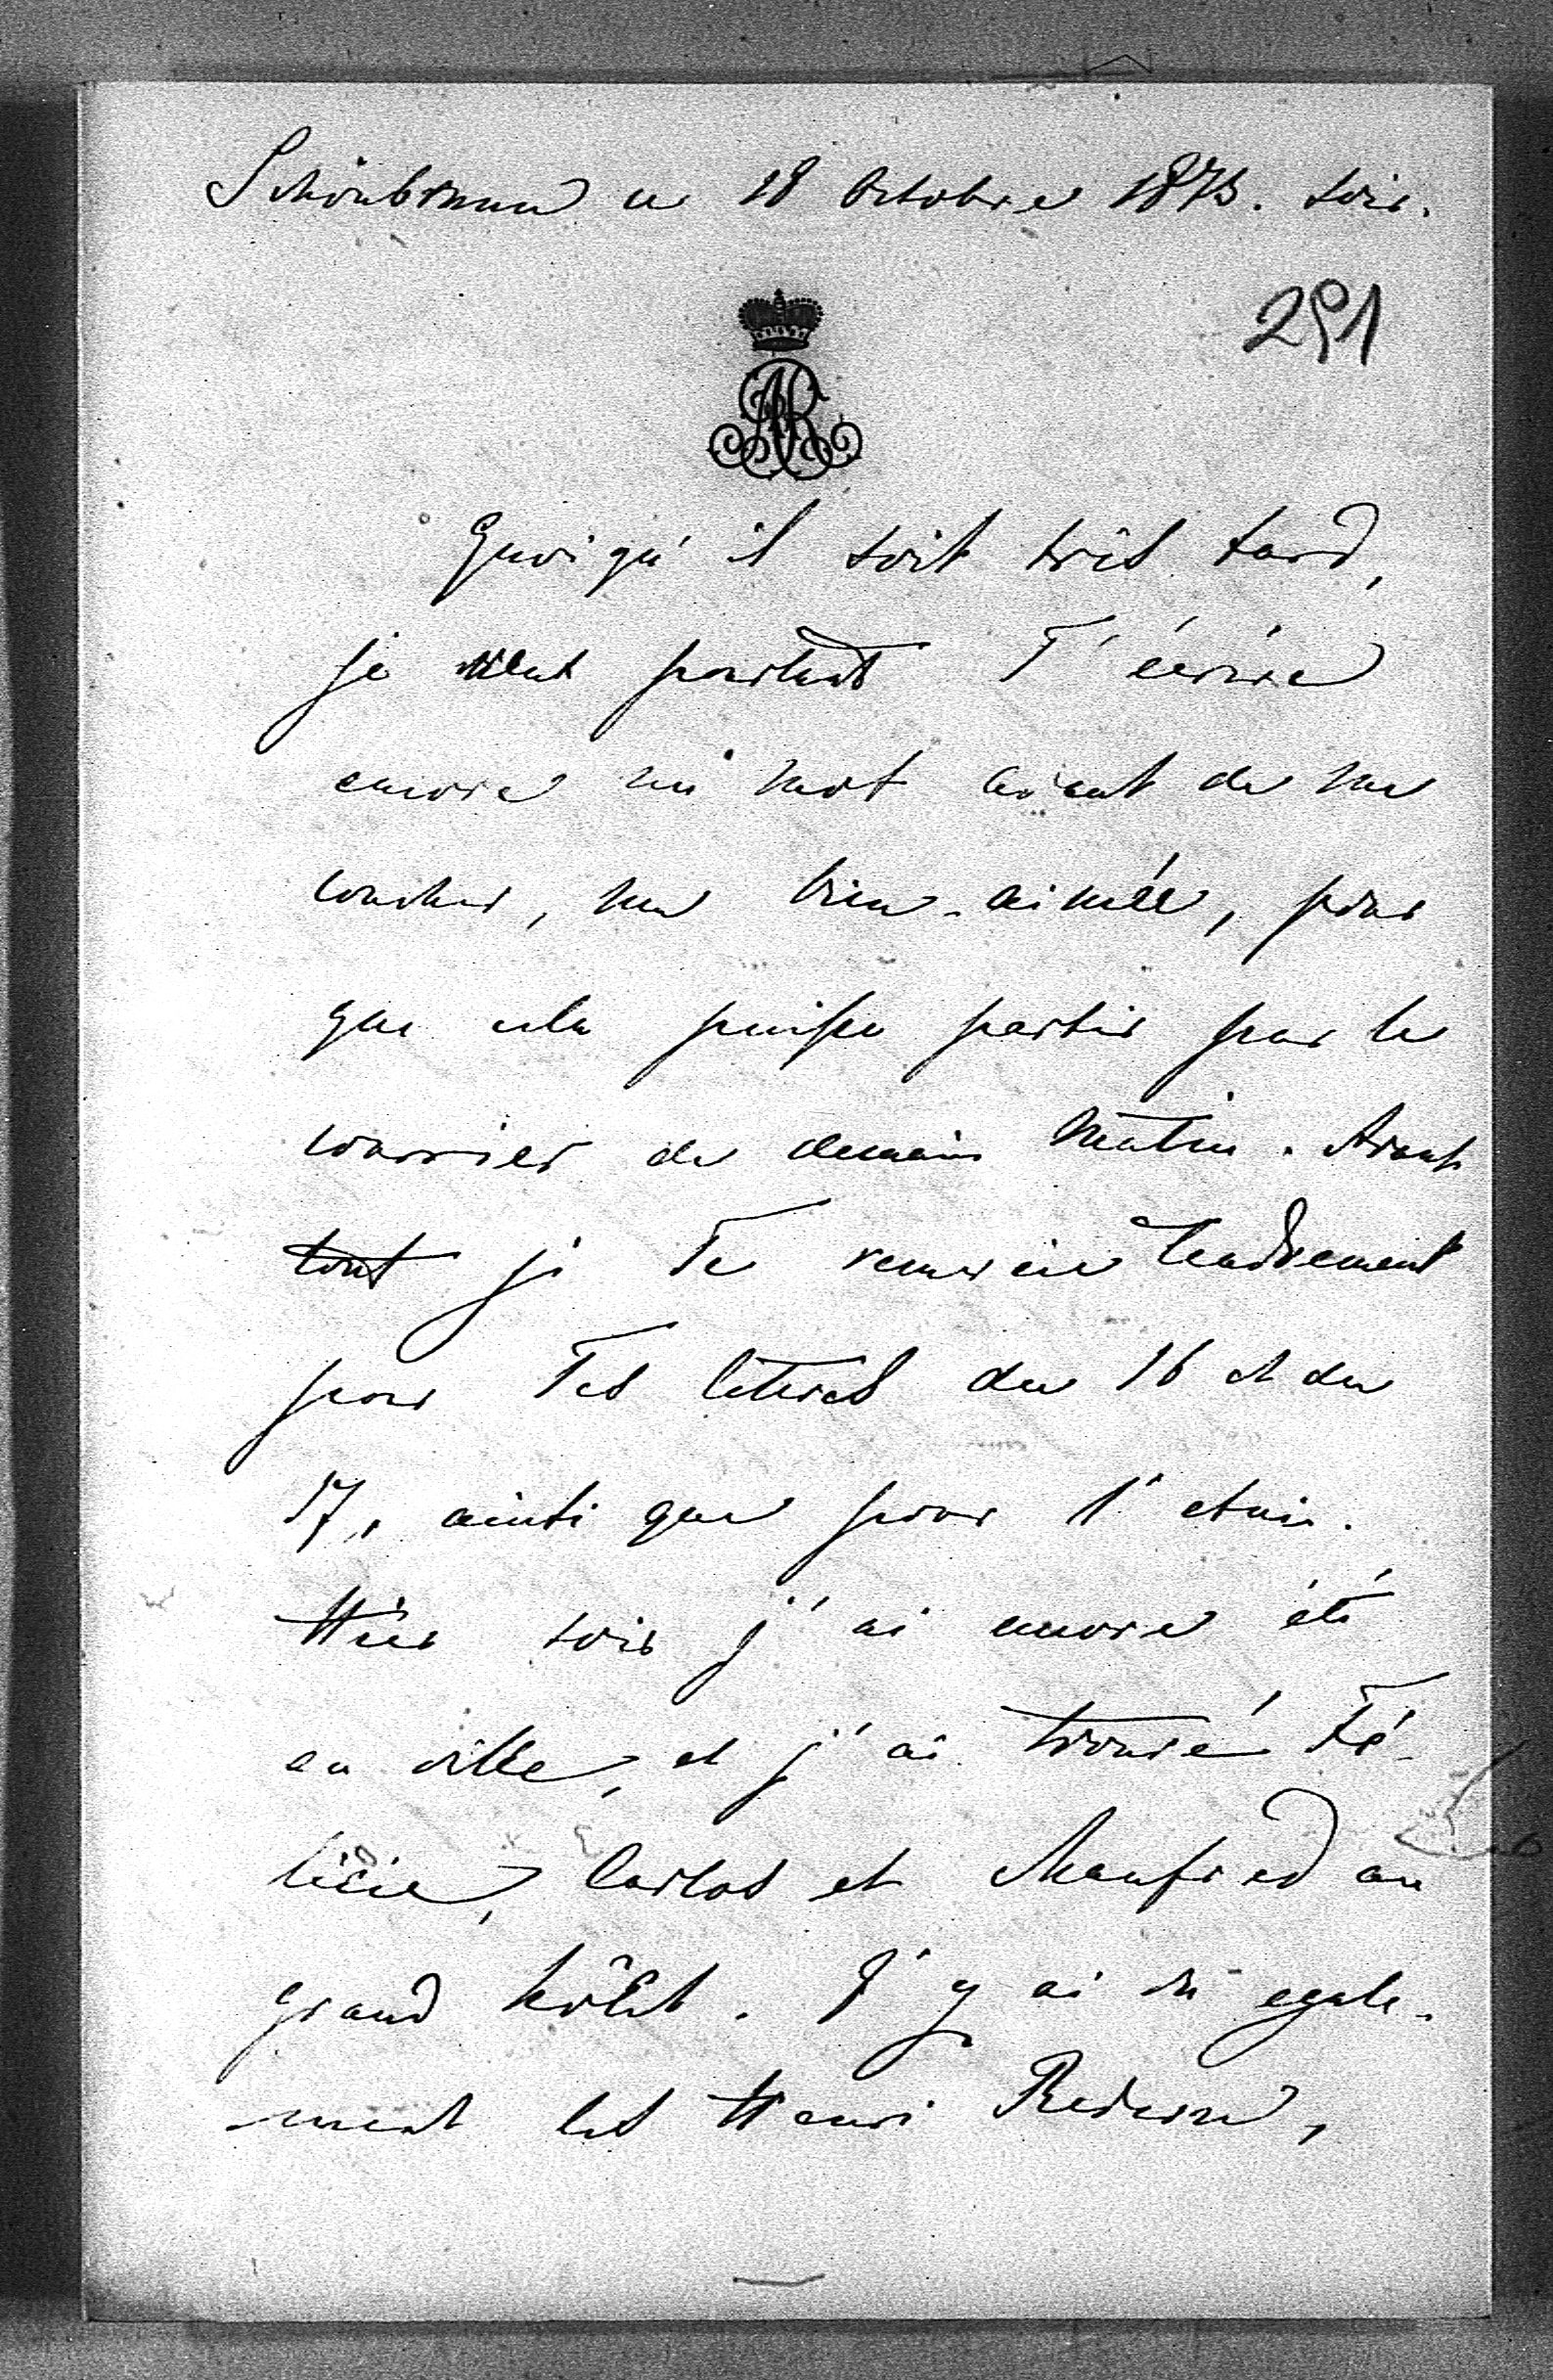 Schönbrunn ce 18 Octobre 1873. soir.
291
Quoiqu' il soit très tard,
je veux pourtant T'écrire
encore un mot avant de me
coucher, ma bien-aimée, pour
que cela puisse partir par le
courrier de demain matin. Avant
tout je Te remercie tendrement
pour Tes lettres du 16 et du
17, ainsi que pour l'etui.
Hier soir j'ai encore été
en ville, et j'ai trouvé Fé-
licie, Carlos et Manfred au
grand hôtel. J'y ai vu egale-
ment les Henri Redern,